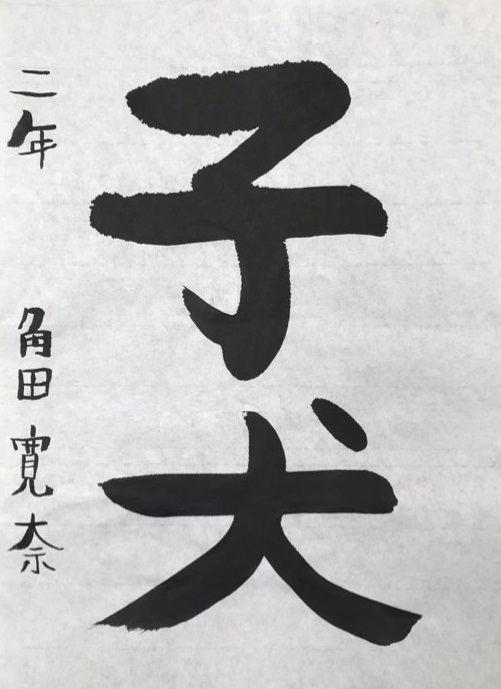 子犬
二年 角田寛奈